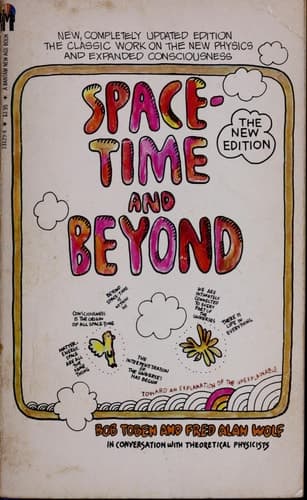 NEW, COMPLETELY UPDATED EDITION
THE CLASSIC WORK ON THE NEW PHYSICS
AND EXPANDED CONSCIOUSNESS
SPACE-
TIME
AND
BEYOND
THE
NEW
EDITION
CONSCIOUSNESS
IS THE ORIGIN
OF ALL SPACE-TIME
BEYOND
SPACE-TIME
IS
WE ARE
INTIMATELY
CONNECTED
TO EVERY
PART OF
THE
UNIVERSE
THERE IS
LIFE IN
EVERYTHING
MATTER,
ENERGY,
SPACE
ARE ALL
THE
SAME
THING
THE
INTERPENETRATION
OF
THE UNIVERSES
HAS BEGUN
TOWARD AN EXPLANATION OF THE UNEXPLAINABLE
BOB TOBEN AND FRED ALAN WOLF
IN CONVERSATION WITH THEORETICAL PHYSICISTS